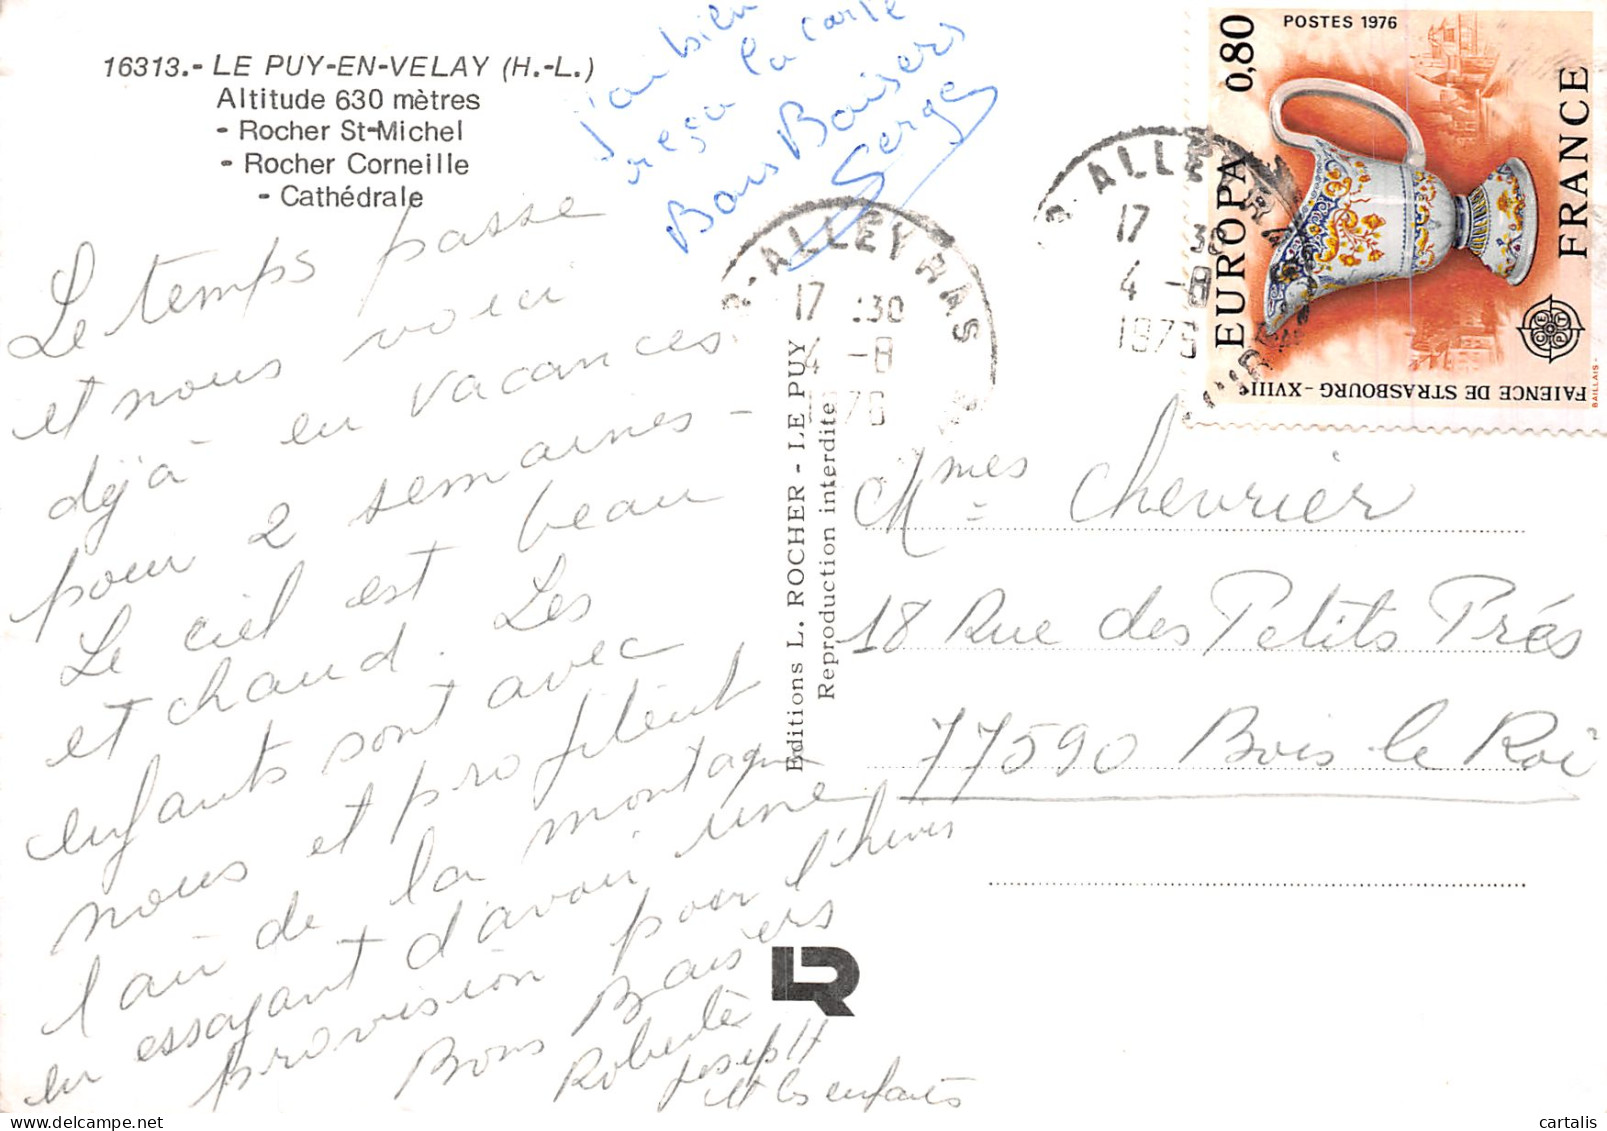 16313.- LE PUY-EN-VELAY (H.-L.)
Altitude 630 mètres
- Rocher St-Michel
- Rocher Corneille
- Cathédrale
j'ai bien
reçu la carte
Bons Baisers
Serge
Le temps passe
et nous voici
déjà en vacances
pour 2 semaines -
Le ciel est beau
et chaud. Les
enfants sont avec
nous et profitent
l'air de la montagne
en essayant d'avoir une
provision pour l'hiver
Bons Baisers
Roberte
Joseph
et les enfants
Editions L. ROCHER - LE PUY
Reproduction interdite
LR
ALLEYRAS
17 :30
4 -8
1976
ALLEYRAS
17 30
4 -8
1976
POSTES 1976
0,80
EUROPA
FRANCE
FAIENCE DE STRASBOURG - XVIIIe
CEPT
BAILLAIS
Mmes Chevrier
18 Rue des Petits Prés
77590 Bois le Roi
cartalis
cartalis.delcampe.net